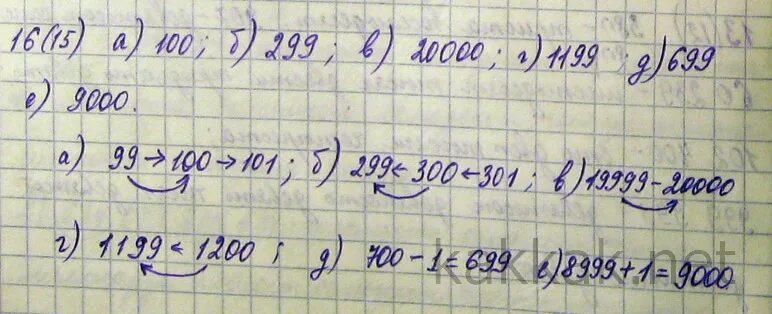 16(15) а) 100; б) 299; в) 20000; г) 1199; д) 699
е) 9000.
а) 99→100→101; б) 299←300←301; в) 19999-20000
г) 1199←1200; д) 700-1=699 е) 8999+1=9000
kakkak.net